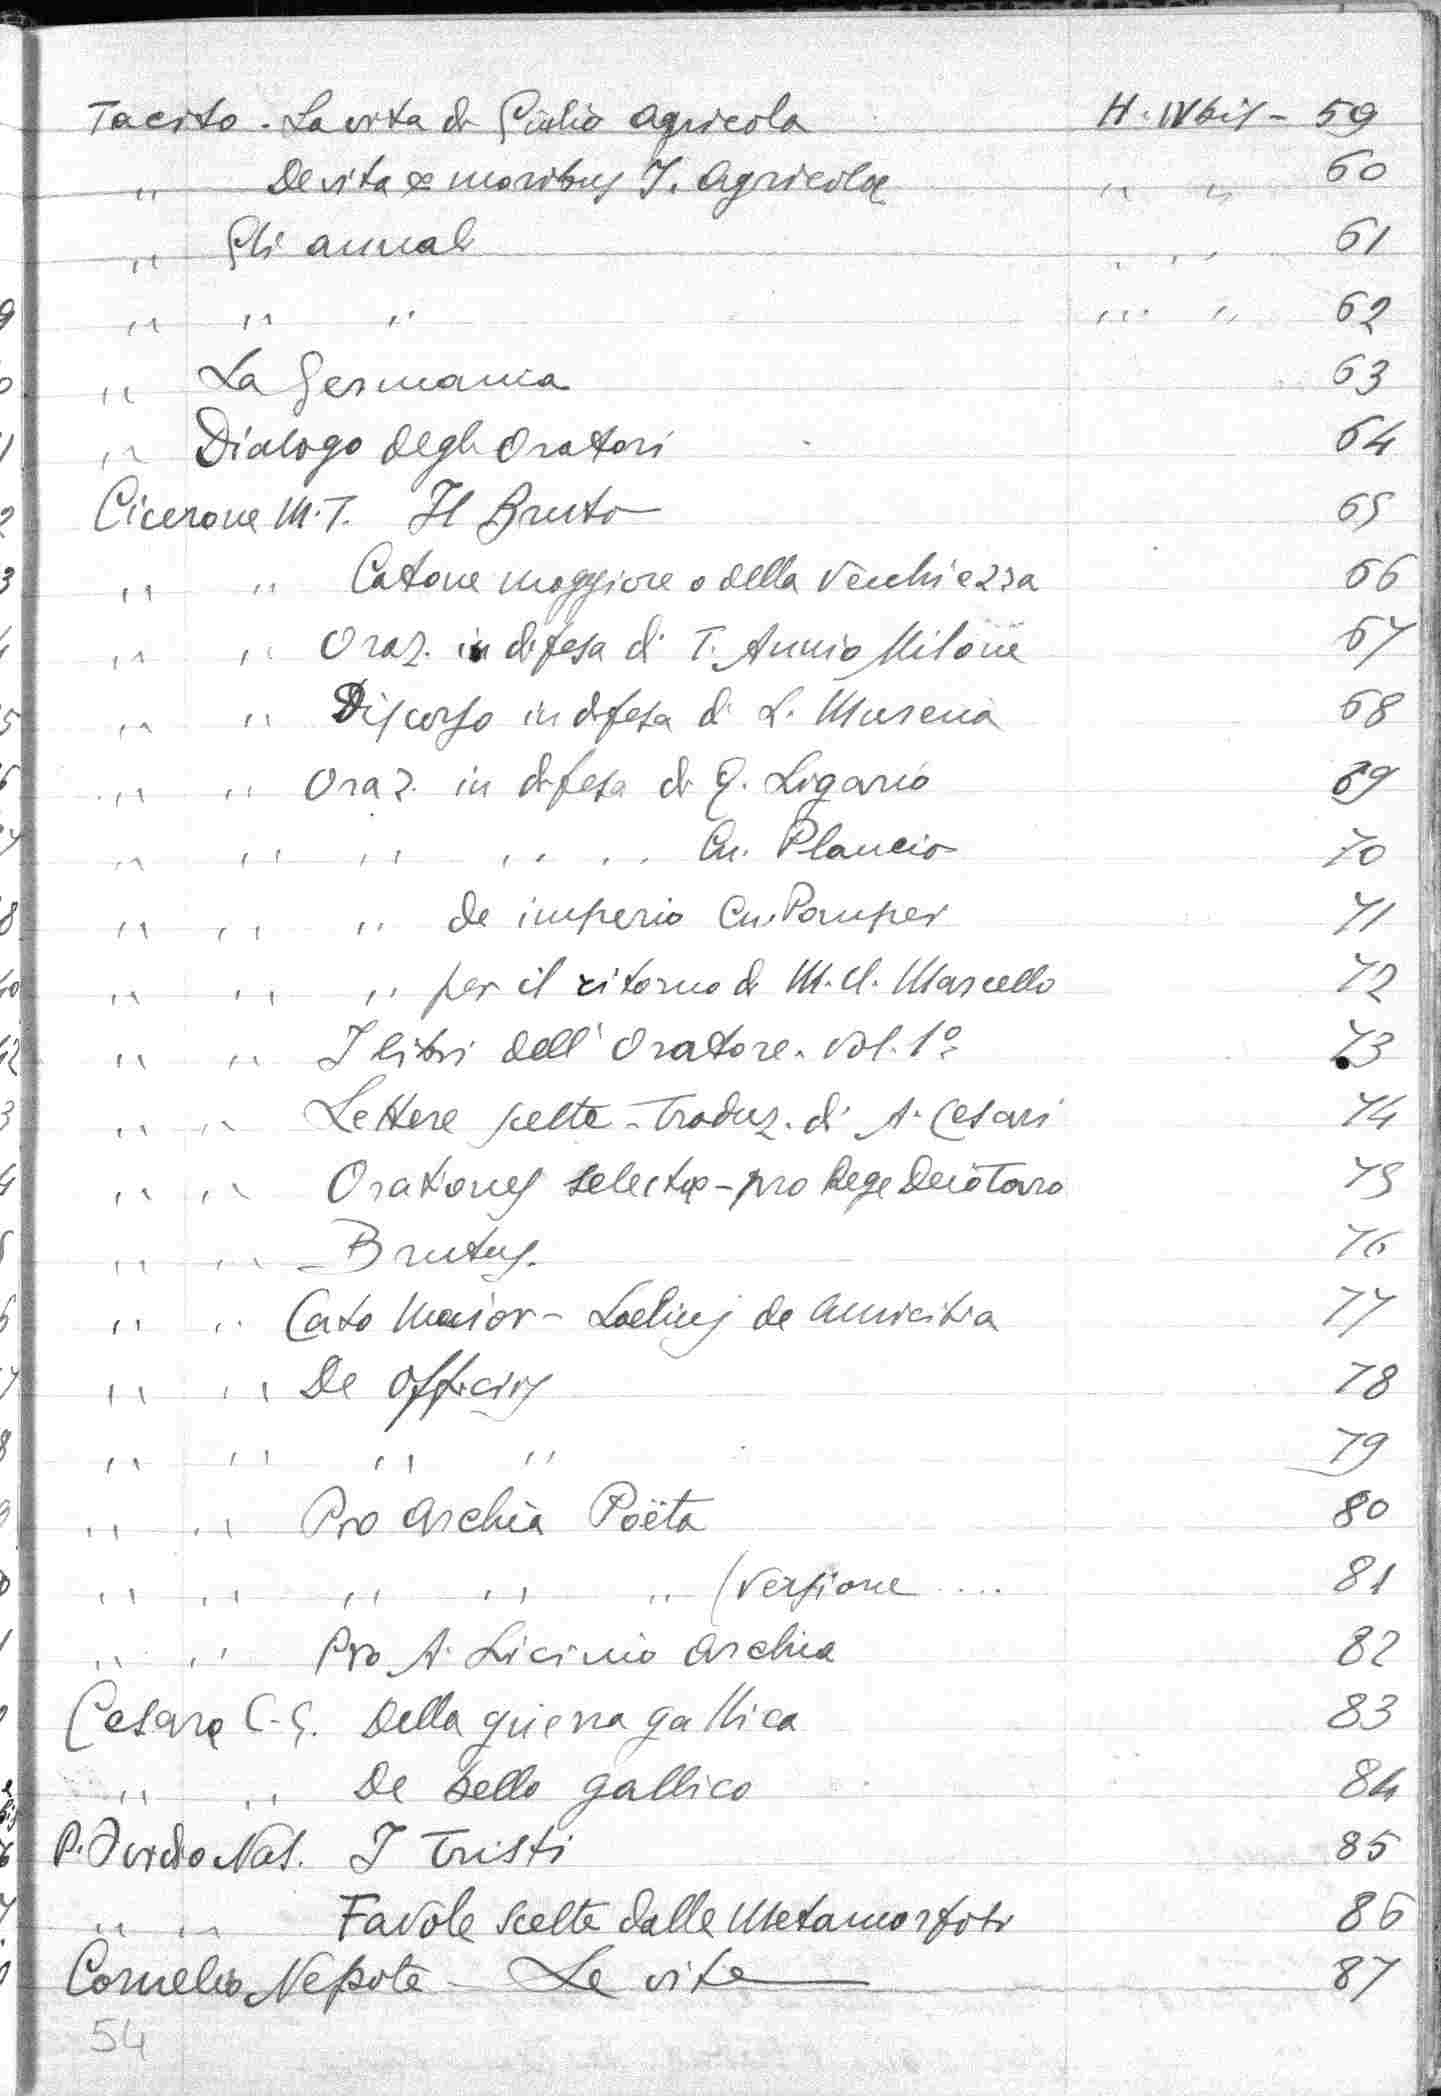 Tacito - La vita di Giulio Agricola H. IV bis - 59
" De vita et moribus J. Agricolæ " " 60
" Gli annali " " 61
" " " " " 62
" La Germania 63
" Dialogo degli Oratori 64
Cicerone M.T. Il Bruto 65
" " Catone maggiore o della Vecchiezza 66
" " Oraz. in difesa di T. Annio Milone 67
" " Discorso in difesa di L. Murena 68
" " Oraz. in difesa di Q. Ligario 69
" " " " " Cn. Plancio 70
" " " de imperio Cn. Pompei 71
" " " per il ritorno di M. Cl. Marcello 72
" " I libri dell'Oratore. Vol. 1º 73
" " Lettere scelte - Traduz. di A. Cesari 74
" " Orationes selectæ - pro Rege Deiotaro 75
" " - Brutus. 76
" " Cato Maior - Laelius de Amicitia 77
" " De Officiis 78
" " " " 79
" " Pro Archia Poëta 80
" " " " " (versione .... 81
" " Pro A. Licinio Archia 82
Cesare C. G. Della guerra gallica 83
" " De bello gallico 84
P. Ovidio Nas. I Tristi 85
" " Favole scelte dalle Metamorfosi 86
Cornelio Nepote - Le vite 87
54